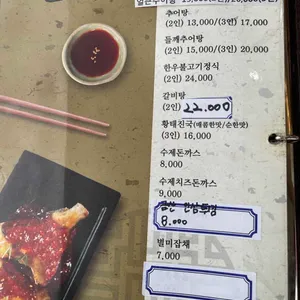 추어탕
(2인) 13,000/(3인) 17,000
들깨추어탕
(2인) 15,000/(3인) 20,000
한우불고기정식
(2인) 24,000
갈비탕
(2인) 22.000
황태진국(매콤한맛/순한맛)
(3인) 16,000
수제돈까스
8,000
수제치즈돈까스
9,000
금산 인삼튀김
8.000
별미잡채
7,000